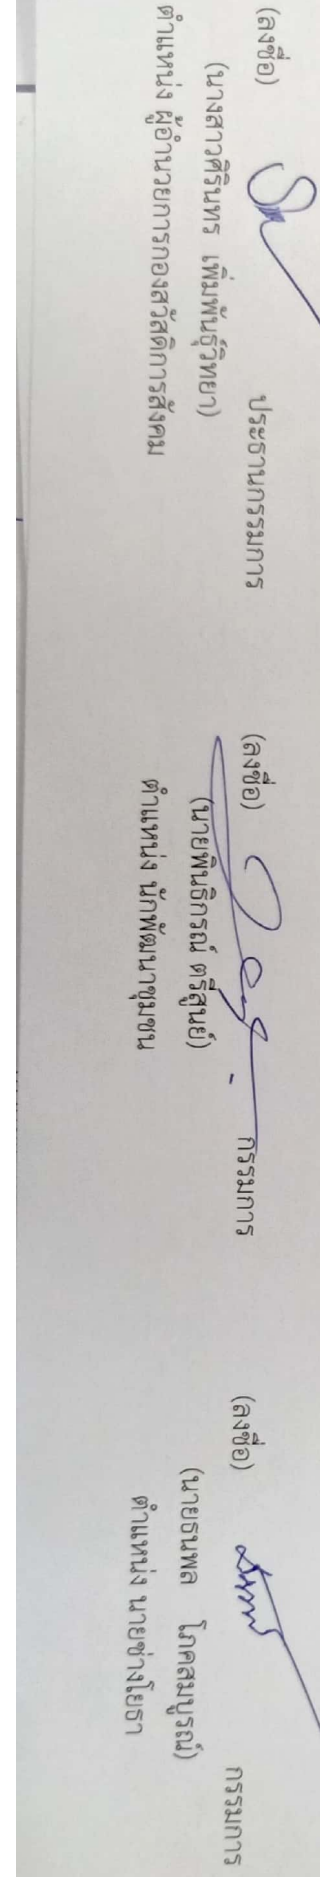 (ลงชื่อ) ประธานกรรมการ
(นางสาวศิรินทร เพิ่มพันธุ์วิทยา)
ตำแหน่ง ผู้อำนวยการกองสวัสดิการสังคม
(ลงชื่อ) กรรมการ
(นายพินธิกรณ์ ตรีสูนย์)
ตำแหน่ง นักพัฒนาชุมชน
(ลงชื่อ) กรรมการ
(นายธนพล โภคสมบูรณ์)
ตำแหน่ง นายช่างโยธา